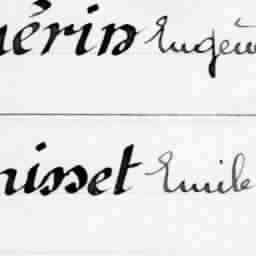 uérin Eugèn
nisset Emile